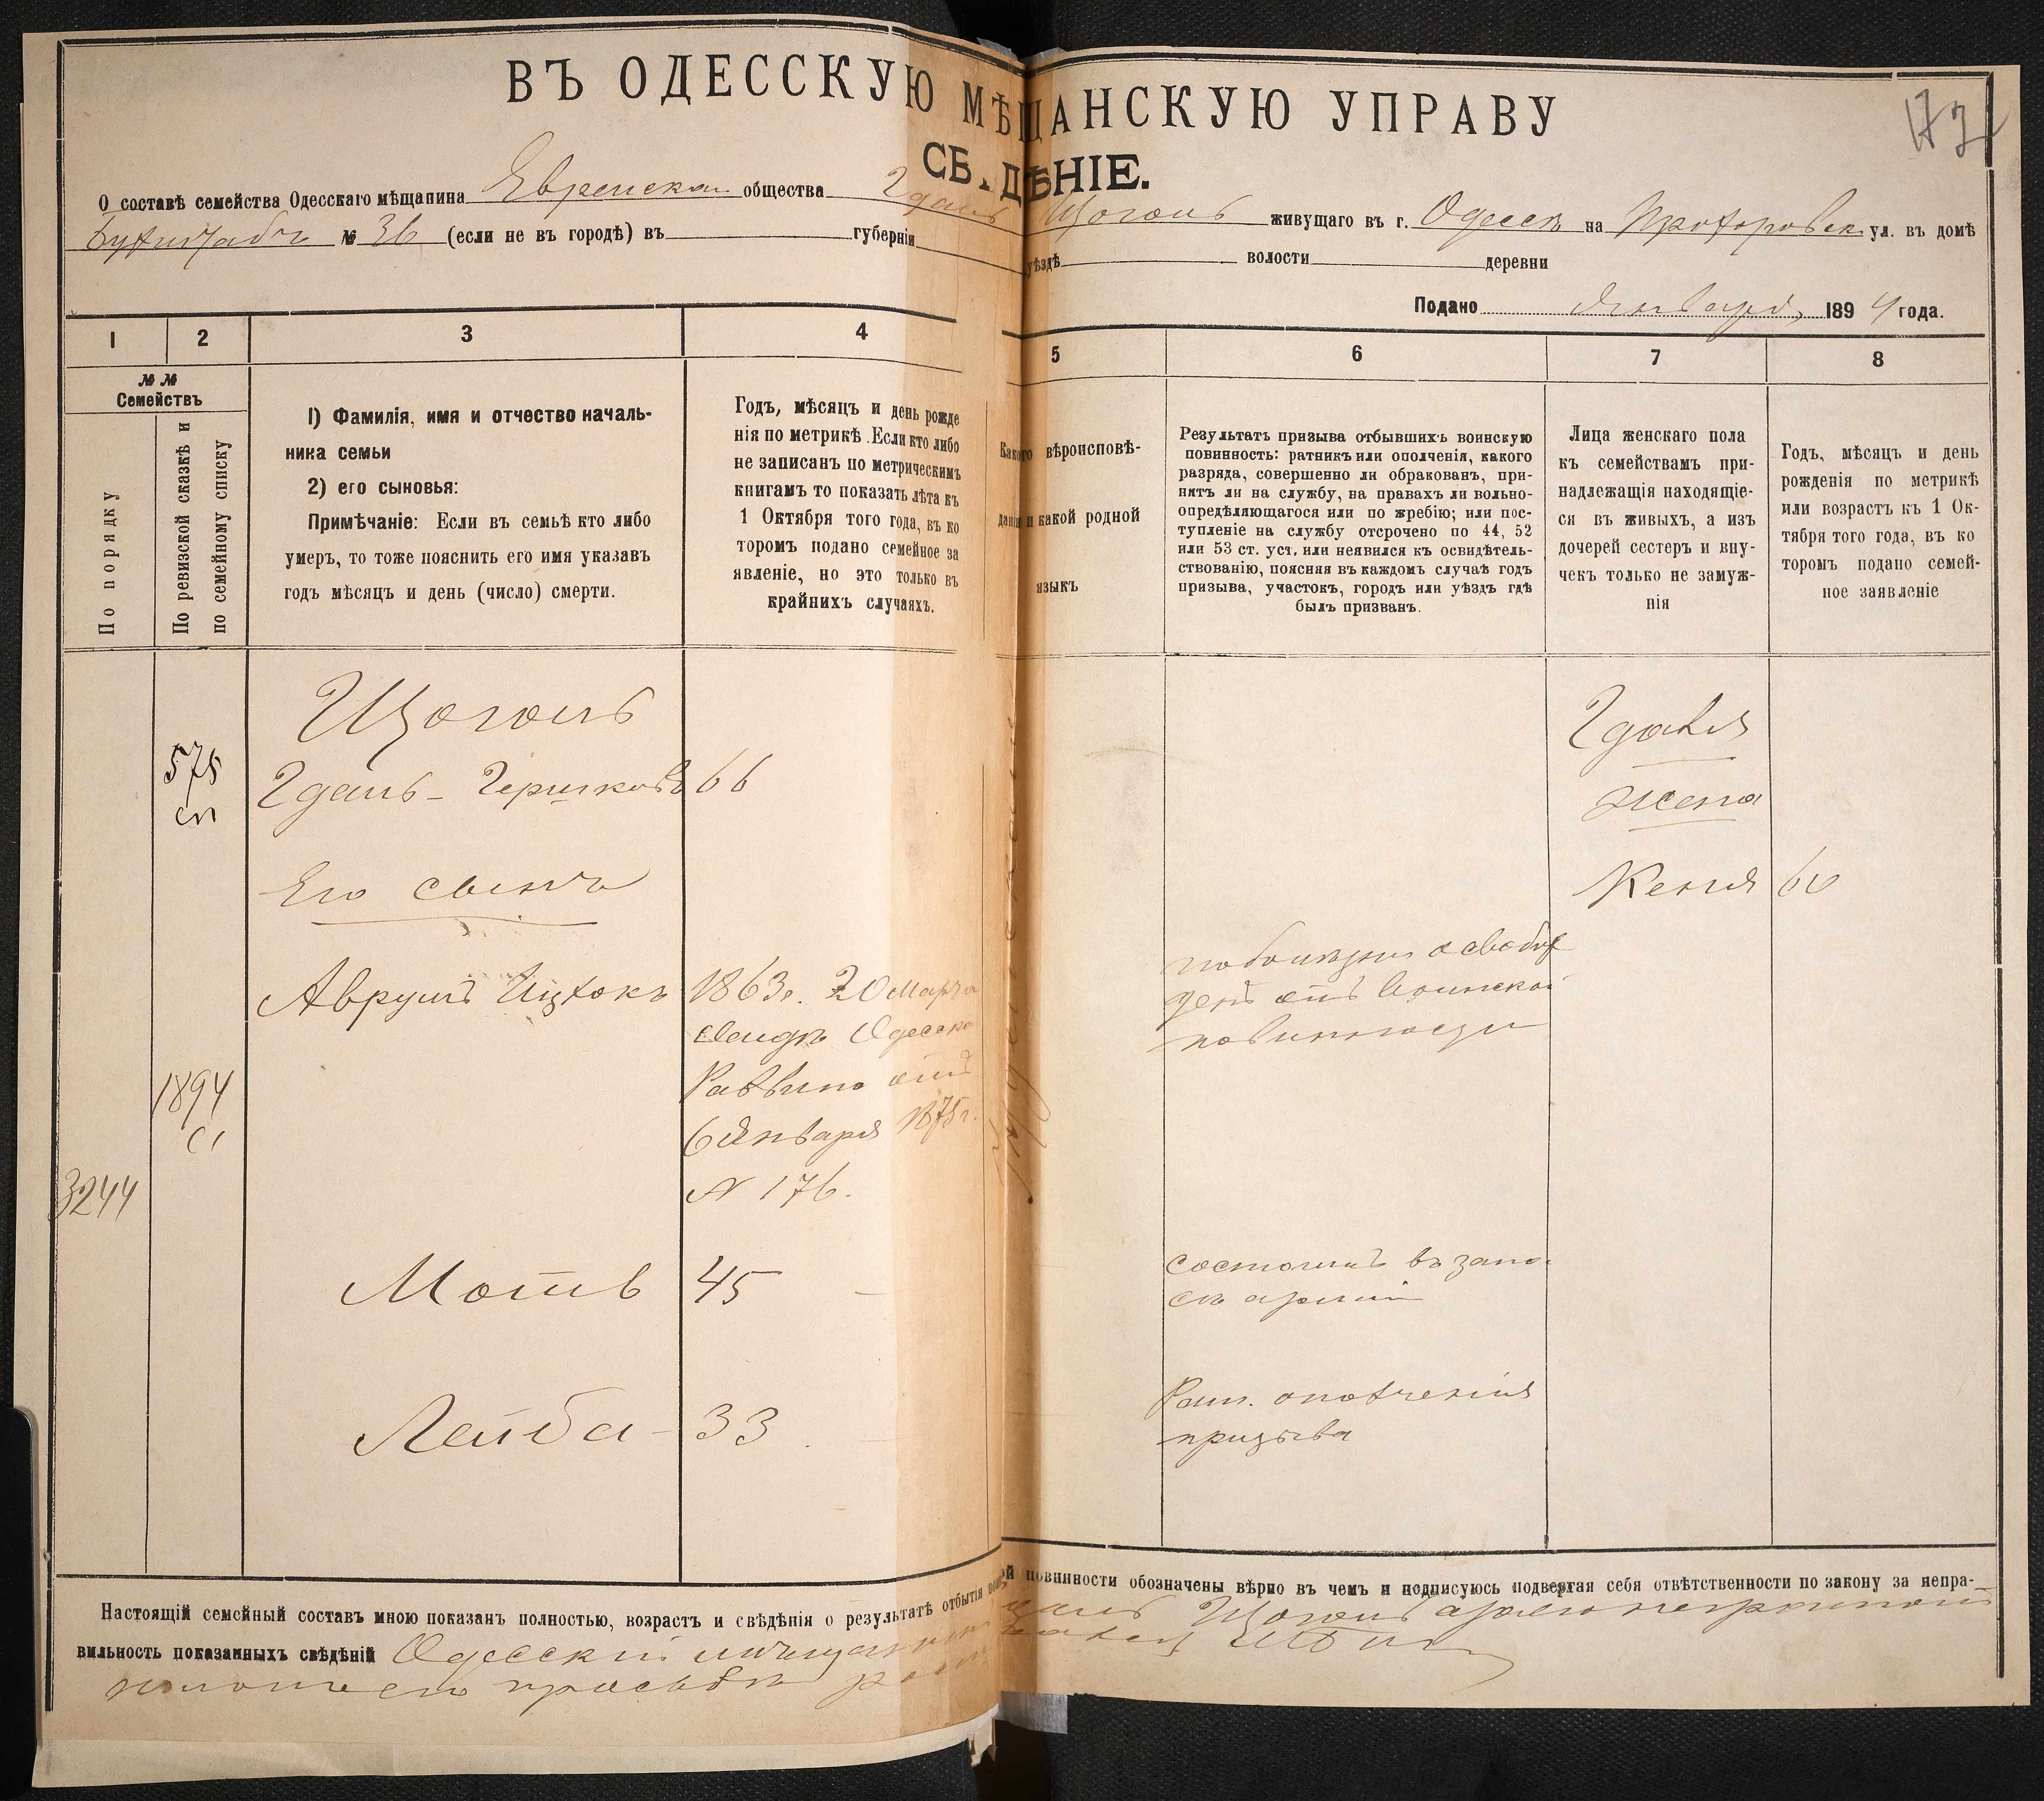 ВЪ ОДЕССКУЮ МѢЩАНСКУЮ УПРАВУ
СВѢДѢНІЕ.
О составѣ семейства Одесскаго мѣщанина Еврейскаго общества Гдаль Щоголь живущаго въ г. Одессѣ на Прохоровск. ул. въ домѣ
№ 36 (если не въ городѣ) въ губерніи уѣздѣ волости деревни
Подано Января 1894 года.
1 2 3 4 5 6 7 8
№ №
Семействъ
По порядку
По ревизской сказкѣ и
по семейному списку
1) Фамилія, имя и отчество началь-
ника семьи
2) его сыновья:
Примѣчаніе: Если въ семьѣ кто либо
умеръ, то тоже пояснить его имя указавъ
годъ мѣсяцъ и день (число) смерти.
Годъ, мѣсяцъ и день рожде
нія по метрикѣ. Если кто либо
не записанъ по метрическимъ
книгамъ то показать лѣта къ
1 Октября того года, въ ко
торомъ подано семейное за
явленіе, но это только въ
крайнихъ случаяхъ.
Какого вѣроисповѣ-
данія и какой родной
языкъ
Результатъ призыва отбывшихъ воинскую
повинность: ратникъ или ополченія, какого
разряда, совершенно ли обракованъ, при-
нятъ ли на службу, на правахъ ли вольно-
опредѣляющагося или по жребію; или пос-
тупленіе на службу отсрочено по 44, 52
или 53 ст. уст. или неявился къ освидѣтель-
ствованію, поясняя въ каждомъ случаѣ годъ
призыва, участокъ, городъ или уѣздъ гдѣ
былъ призванъ.
Лица женскаго пола
къ семействамъ при-
надлежащія находящіе-
ся въ живыхъ, а изъ
дочерей сестеръ и вну-
чекъ только не замуж-
нія
Годъ, мѣсяцъ и день
рожденія по метрикѣ
или возрастъ къ 1 Ок-
тября того года, въ ко
торомъ подано семей-
ное заявленіе
Щоголь
575
сп
Гдаль - Гершковъ 66
Гдаля
жена
Кеня 60
Его сынъ
Аврумъ Ицхокъ 1863г. 20 Марта
Одесск
Раввина отъ
6 Января 1875г.
№ 176.
освобож
денъ отъ Воинской
повинности
1894
3244
Мотъ 45
состоитъ въ запа-
сѣ арміи
Лейба - 33
Рат. ополченія
призыва
Настоящій семейный составъ мною показанъ полностью, возрастъ и свѣдѣнія о результатѣ отбытія воинской повинности обозначены вѣрно въ чемъ и подписуюсь подвергая себя отвѣтственности по закону за непра-
вильность показанныхъ свѣдѣній Одесскій мѣщанинъ Щоголь а
просьбѣ